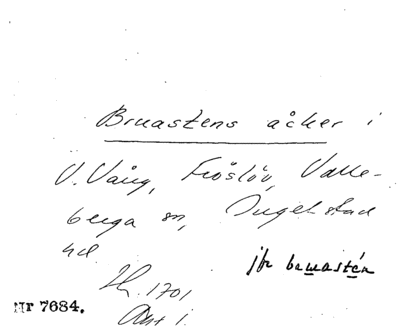 Bruastens åcker i
V. Vång, Fröslöv, Valle-
berga sn, Ingelstad
hd
jfr bruastén
Lh. 1701
Akt 1.
Nr 7684.